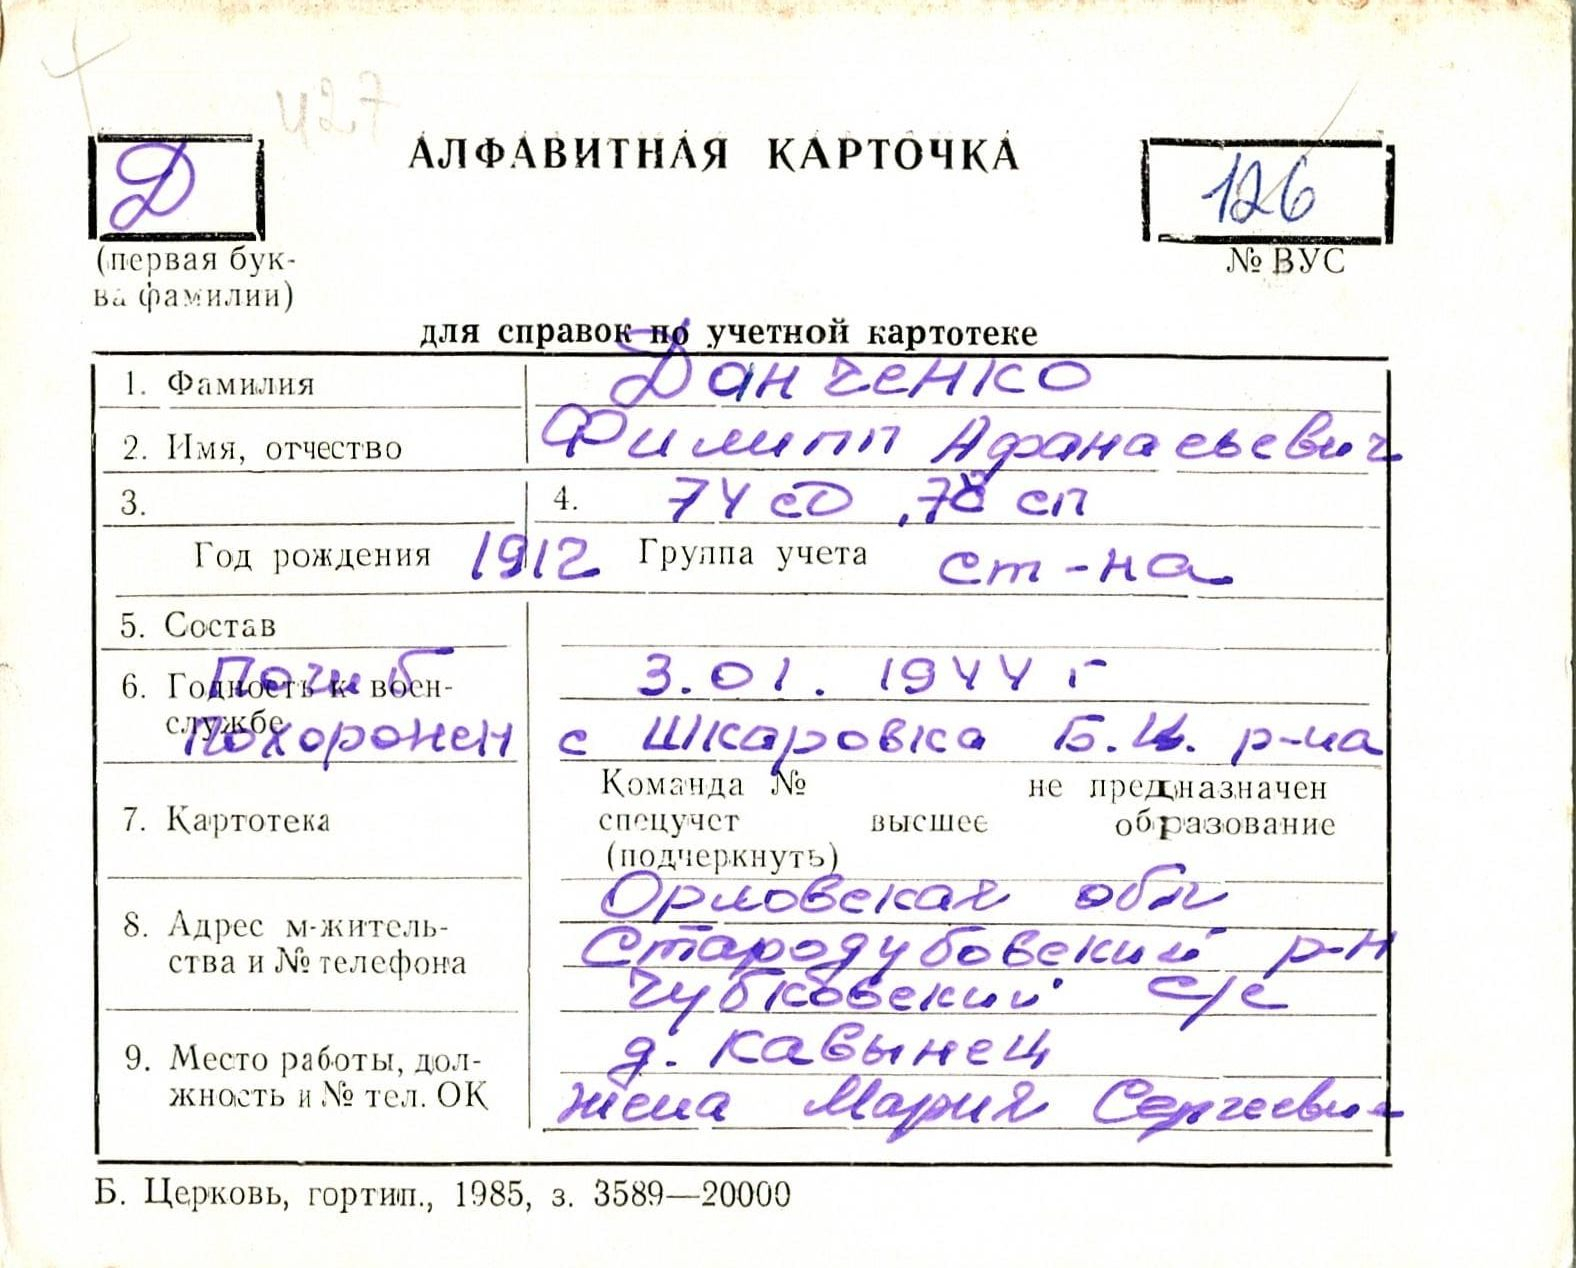 427
Д
АЛФАВИТНАЯ КАРТОЧКА
126
(первая бук-
ва фамилии)
№ ВУС
для справок по учетной картотеке
1. Фамилия Данченко
2. Имя, отчество Филипп Афанасьевич
3. 4. 74 сд, 78 сп
Год рождения 1912 Группа учета ст-на
5. Состав
Погиб 3.01.1944 г
6. Годность к воен-
службе
похоронен с Шкаровка Б.Ц. р-на
Команда № не предназначен
7. Картотека спецучет высшее образование
(подчеркнуть)
Орловская обл
8. Адрес м-житель-
ства и № телефона
Стародубовский р-н
Чубковский с/с
д. Кавынец
9. Место работы, дол-
жность и № тел. ОК
жена Мария Сергеевн
Б. Церковь, гортип., 1985, з. 3589—20000